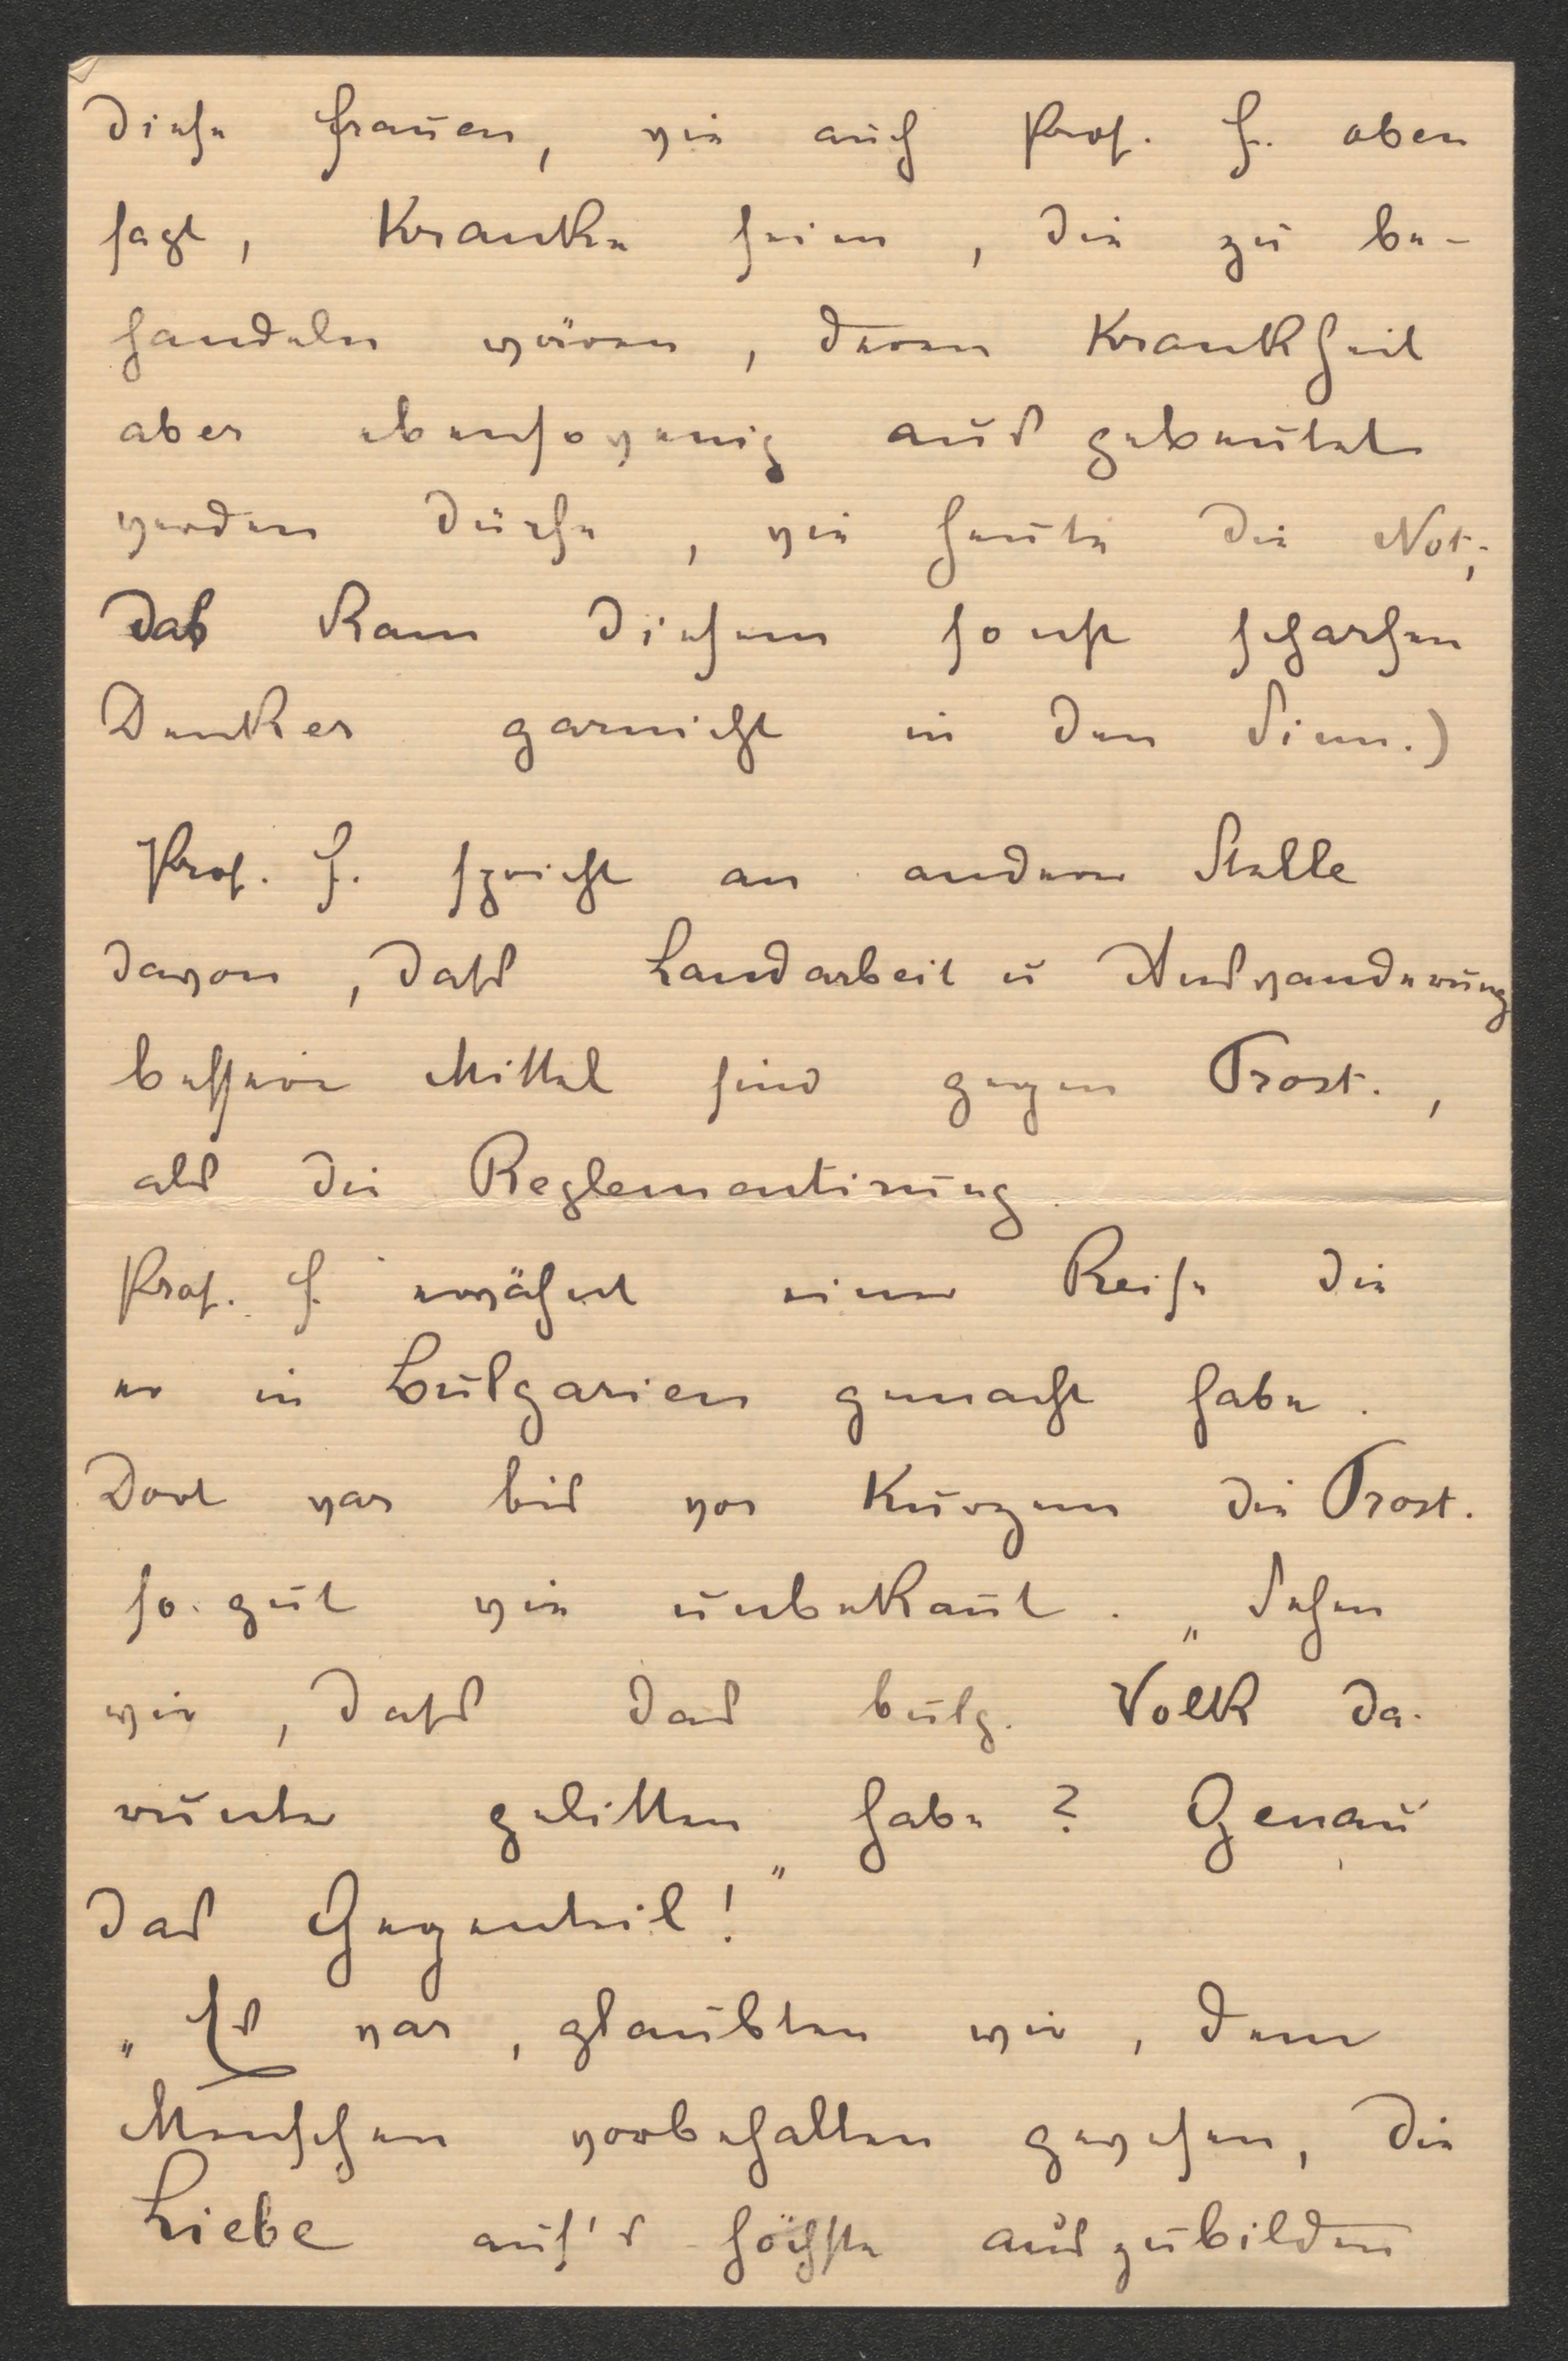 diese Frauen, wie auch Prof. H. oben
sagt, Kranke seien, die zu be-
handeln wären, deren Krankheit
aber ebensowenig ausgebeutet
werden dürfe, wie heute die Not;
das kam diesem sonst scharfen
Denker garnicht in den Sinn.)
Prof. H. spricht an anderer Stelle
davon, dass Landarbeit u Auswanderung
bessere Mittel sind gegen Prost.,
als die Reglementirung.
Prof. H. erwähnt einer Reise die
er in Bulgarien gemacht habe.
Dort war bis vor Kurzem die Prost.
so gut wie unbekant. „Sehen
wir, dass das bulg. Volk da-
runter gelitten habe? Genau
das Gegenteil!"
„Es war, glaubten wir, dem
Menschen vorbehalten gewesen, die
Liebe auf's höchste auszubilden